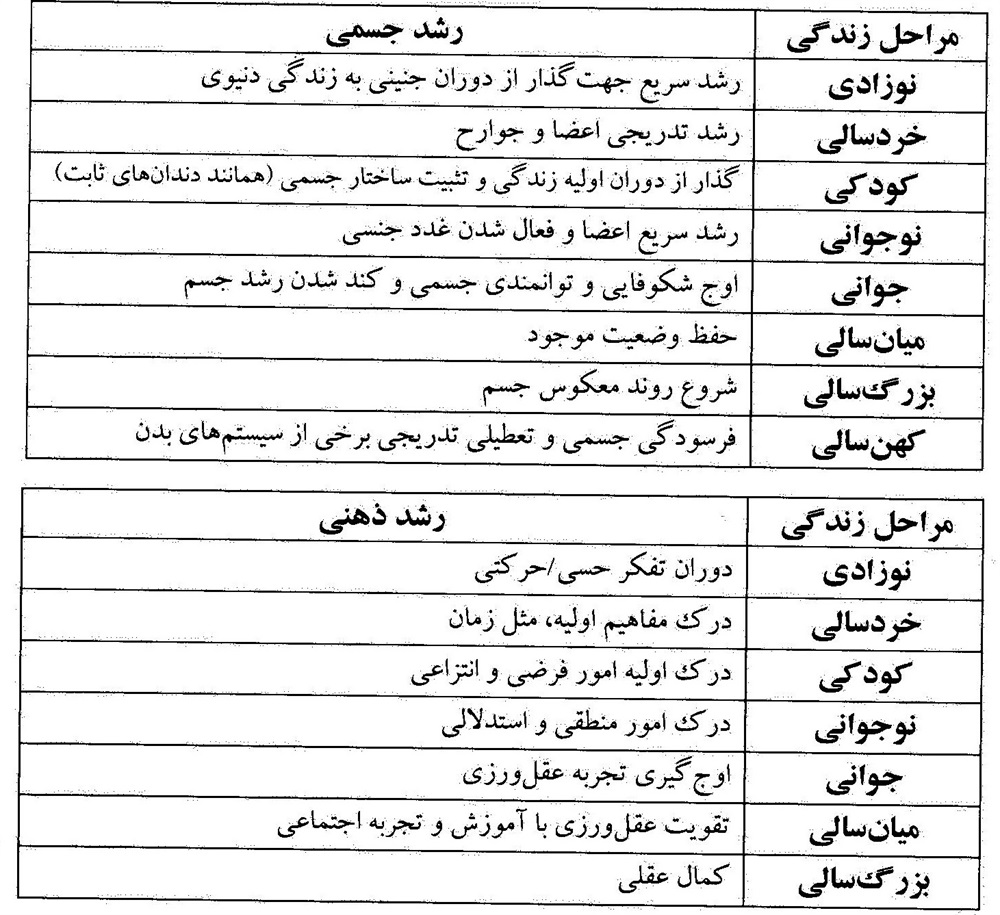 مراحل زندگی	رشد جسمی
نوزادی	رشد سریع جهت گذار از دوران جنینی به زندگی دنیوی
خردسالی	رشد تدریجی اعضا و جوارح
کودکی	گذار از دوران اولیه زندگی و تثبیت ساختار جسمی (همانند دندان‌های ثابت)
نوجوانی	رشد سریع اعضا و فعال شدن غدد جنسی
جوانی	اوج شکوفایی و توانمندی جسمی و کند شدن رشد جسم
میان‌سالی	حفظ وضعیت موجود
بزرگ‌سالی	شروع روند معکوس جسم
کهن‌سالی	فرسودگی جسمی و تعطیلی تدریجی برخی از سیستم‌های بدن
مراحل زندگی	رشد ذهنی
نوزادی	دوران تفکر حسی/حرکتی
خردسالی	درک مفاهیم اولیه، مثل زمان
کودکی	درک اولیه امور فرضی و انتزاعی
نوجوانی	درک امور منطقی و استدلالی
جوانی	اوج گیری تجربه عقل‌ورزی
میان‌سالی	تقویت عقل‌ورزی با آموزش و تجربه اجتماعی
بزرگ‌سالی	کمال عقلی